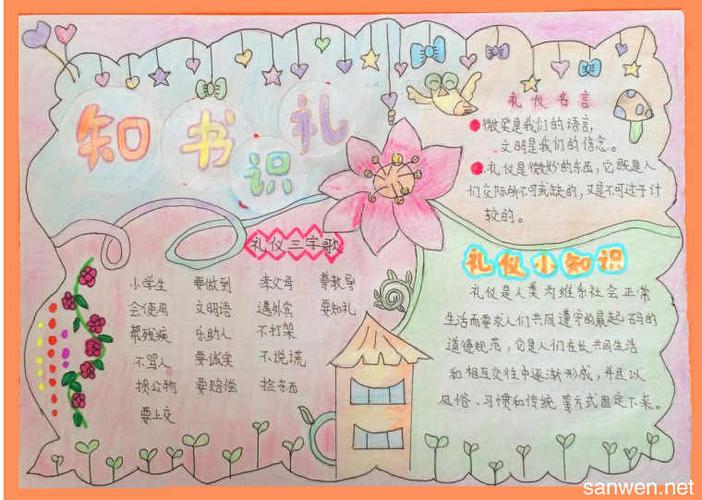 知书识礼
礼仪名言
微笑是我们的语言,
文明是我们的信念。
礼仪是微妙的东西,它既是人
们交际所不可或缺的,又是不可过于计
较的。
礼仪三字歌
小学生 要做到 孝父母 尊教导
会使用 文明语 遇外宾 要知礼
帮残疾 乐助人 不打架
不骂人 要诚实 不说谎
损公物 要赔偿 捡东西
要上交
礼仪小知识
礼仪是人类为维系社会正常
生活而要求人们共同遵守的最起码的
道德规范,它是人们在长共同生活
和相互交往中逐渐形成,并且以
风俗、习惯和传统等方式固定下来。
sanwen.net